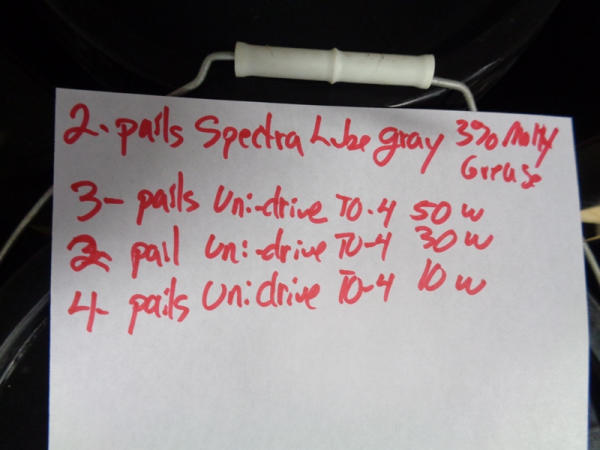 2- pails Spectra Lube gray 3% Molly
Grease
3- pails Uni-drive TO-4 50 w
pail Uni-drive TO-4 30 w
4- pails Uni drive TO-4 10 w